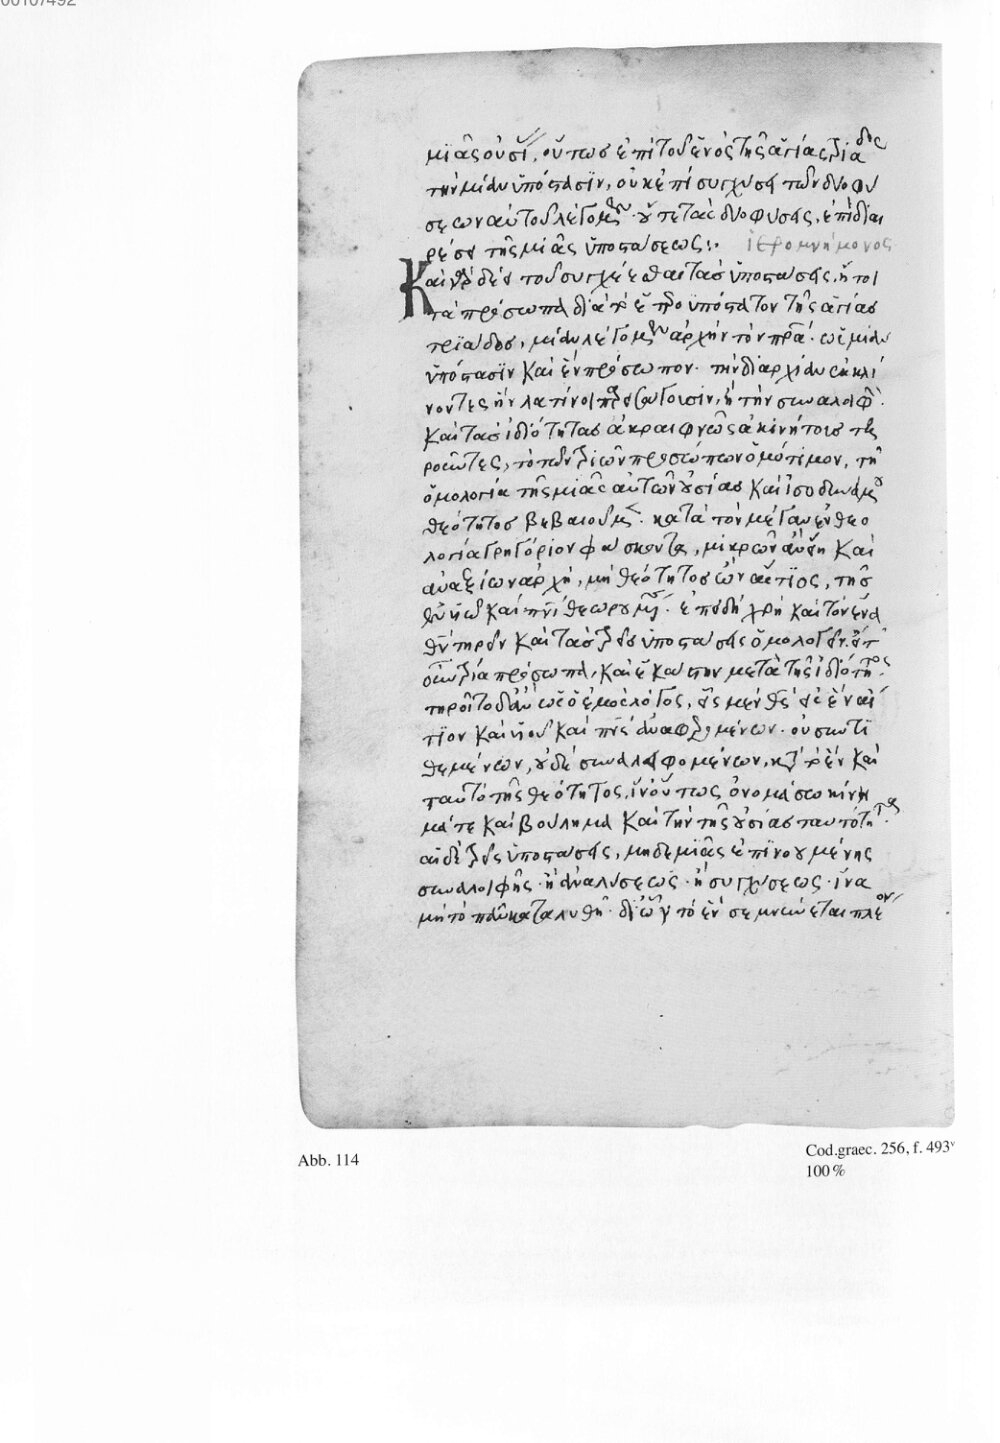 00107492
μιᾶς οὐσί, οὕτως ἐπὶ τοῦ ἑνὸς τῆς ἁγίας τριάδος
τὴν μίαν ὑπόστασιν, οὐκ ἐπὶ συγχύσει τῶν δύο φύ
σεων αὐτοῦ λέγομεν· οὔτε τὰς δύο φύσεις, ἐπὶ διαι
ρέσει τῆς μιᾶς ὑποστάσεως:· ἱερομνήμονος
Καὶ δεῖν τοῦ συγχέεσθαι τὰς ὑποστάσεις, ἤτοι
τὰ πρόσωπα διὰ τὸ ἑ ὑπόστατον τῆς ἁγίας
τριάδος, μίαν λέγομεν ἀρχὴν τὸν πρα· ὡς μίαν
ὑπόστασιν καὶ ἓν πρόσωπον· τὴν διαρχίαν ἐκκλί
νοντες ἣν λατίνοι εἰσάγουσιν, ἢ τὴν συναλοιφὴν·
καὶ τὰς ἰδιότητας ἀκραιφνῶς ἀκινήτους τη
ροῦντες, τὸ τῶν τριῶν προσώπων ὁμότιμον, τῇ
ὁμολογία τῆς μιᾶς αὐτῶν οὐσίας καὶ ἰσοδυνάμου
θεότητος βεβαιοῦμεν· κατὰ τὸν μέγαν ἐν θεο
λογία Γρηγόριον φάσκοντα, μικρῶν ἂν εἴη καὶ
ἀναξίων ἀρχὴ, μὴ θεότητος ὢν αἴτιος, τῆς
ἐν υἱῷ καὶ πνι θεωρουμένης· ἐπειδὴ χρὴ καὶ τὸν ἕνα
θν τηρεῖν καὶ τὰς τρεῖς ὑποστάσεις ὁμολογεῖν· εἴτ
οὖν τρία πρόσωπα, καὶ ἑκάστην μετὰ τῆς ἰδιότητος·
τηροῖτο δ' ἂν ὡς ὁ ἐμὸς λόγος, εἷς μὲν θς εἰς ἓν αἴ
τιον καὶ υἱοῦ καὶ πνς ἀναφερομένων· οὐ συντι
θεμένων, οὐδὲ συναλειφομένων, κατὰ τὸ ἓν καὶ
ταυτὸ τῆς θεότητος, ἵν' οὕτως ὀνομάσω κίνη
μά τε καὶ βούλημα καὶ τὴν τῆς οὐσίας ταυτότητα·
αἱ δὲ τρεῖς ὑποστάσεις, μηδεμιᾶς ἐπινοουμένης
συναλοιφῆς· ἢ ἀναλύσεως· ἢ συγχύσεως· ἵνα
μὴ τὸ πᾶν καταλυθῇ· δι' ὧν τὸ ἓν σεμνύνεται πλέον
Abb. 114
Cod.graec. 256, f. 493v
100 %